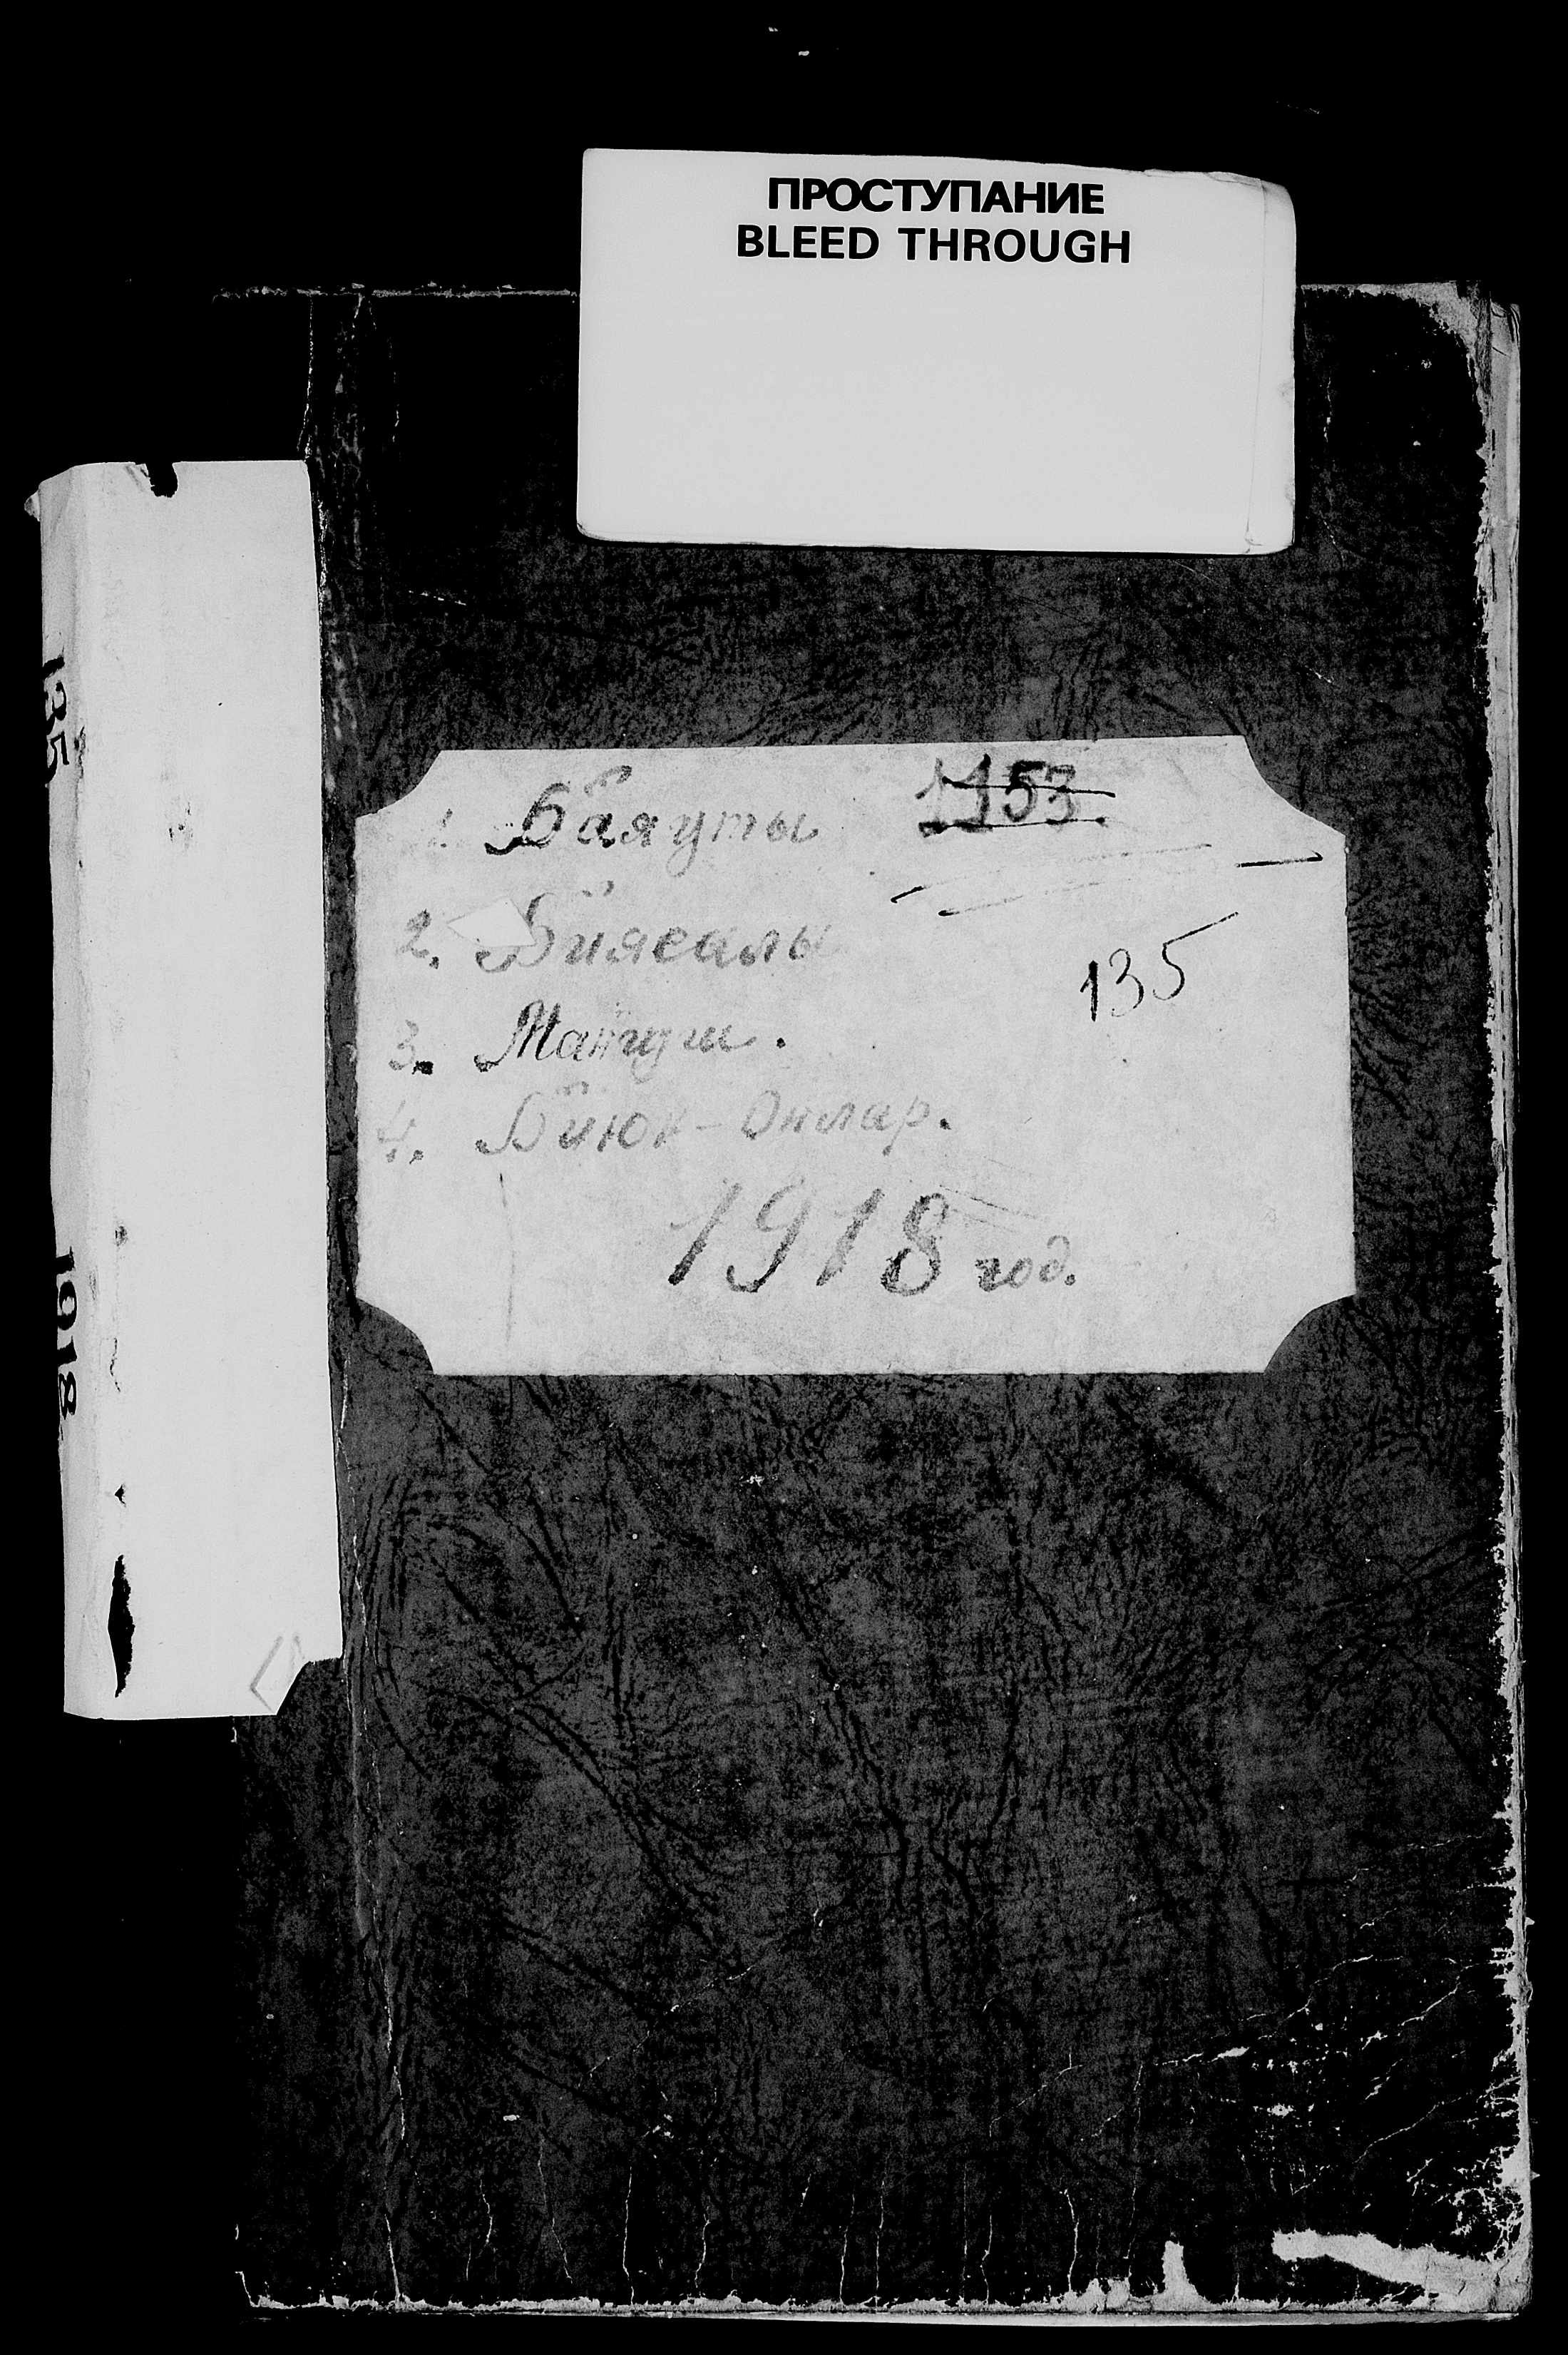 ПРОСТУПАНИЕ
BLEED THROUGH
135
1918
1. Баяуты 1153
2. Биясалы
135
3. Мангуш.
4. Биюк-Онлар.
1918 год.